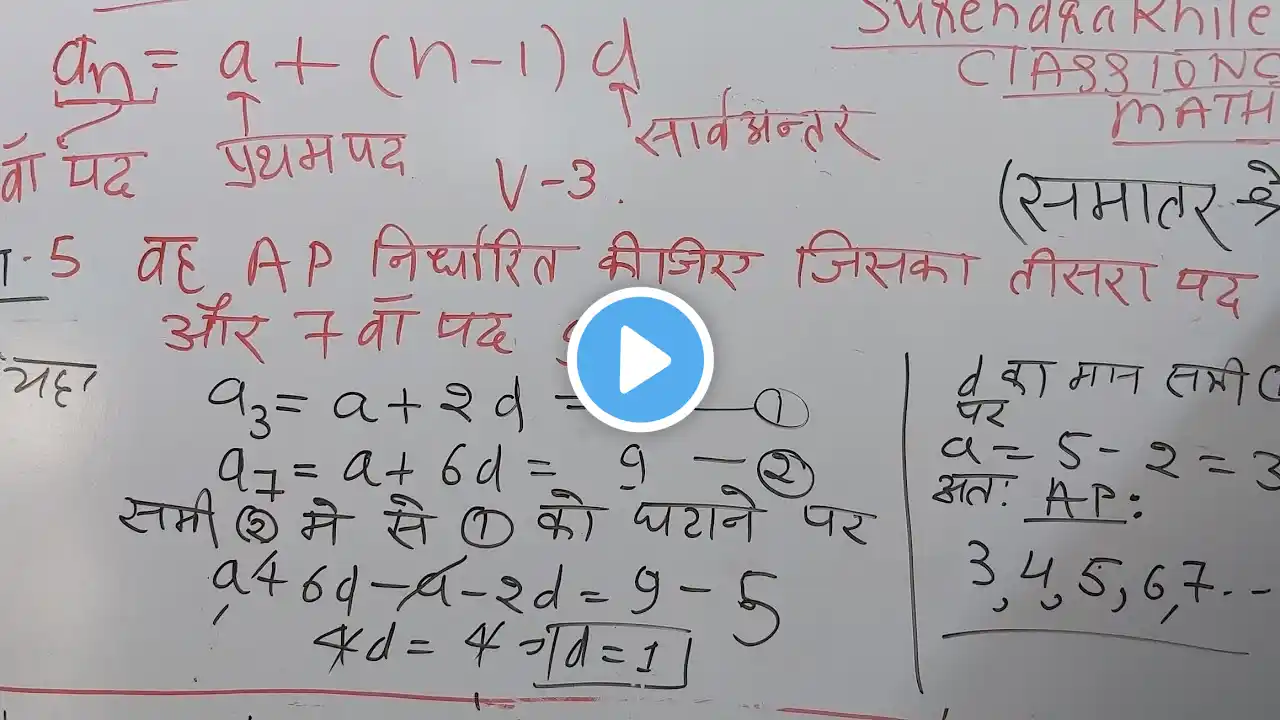 Surendra Khile
CLASSIONC
MATH
an = a + (n-1) d
वाँ पद प्रथम पद सार्वअन्तर
V-3.
(समातर श्रे
5 वह AP निर्धारित कीजिए जिसका तीसरा पद
और 7 वाँ पद
यहा
a3 = a + 2d = ①
a7 = a + 6d = 9 - ②
समी ② मे से ① को घटाने पर
a + 6d - a - 2d = 9 - 5
4d = 4 ⇒ d = 1
d का मान समी
पर
a = 5 - 2 = 3
अतः AP:
3, 4, 5, 6, 7 . . -